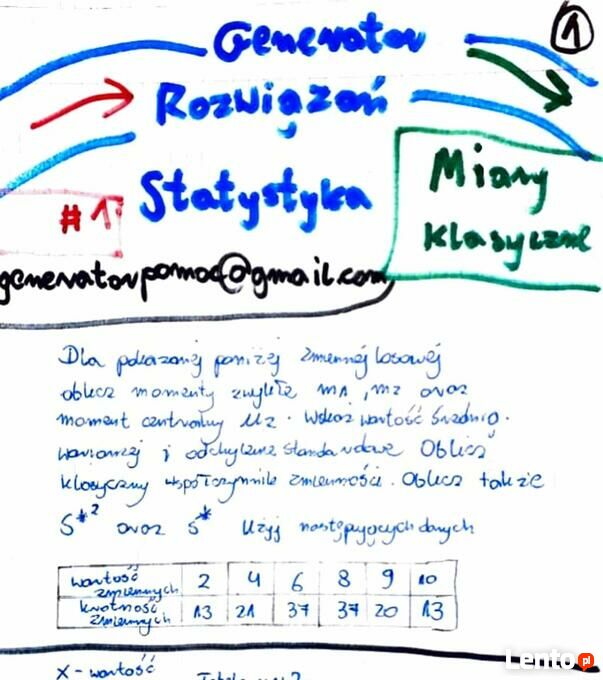 1
Generator
Rozwiązań
Statystyka
#1
Miary
klasyczne
generatorpomoc@gmail.com
Dla pokazanej poniżej zmiennej losowej
oblicz momenty zwykłe m1, m2 oraz
moment centralny μ2. Wskaż wartość średnią.
wariancję i odchylenie standardowe Oblicz
klasyczny współczynnik zmienności. Oblicz także
S*² oraz S* Użyj następujących danych
wartość zmiennych 2 4 6 8 9 10
krotność zmiennych 13 21 37 37 20 13
X - wartość
Lento.pl